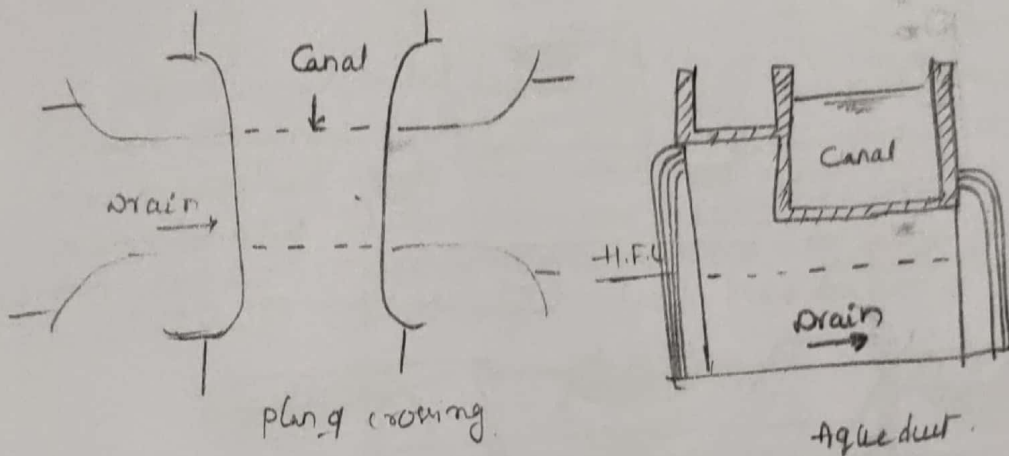 Canal
Drain
plan of crossing.
Canal
H.F.L
Drain
Aqueduct.